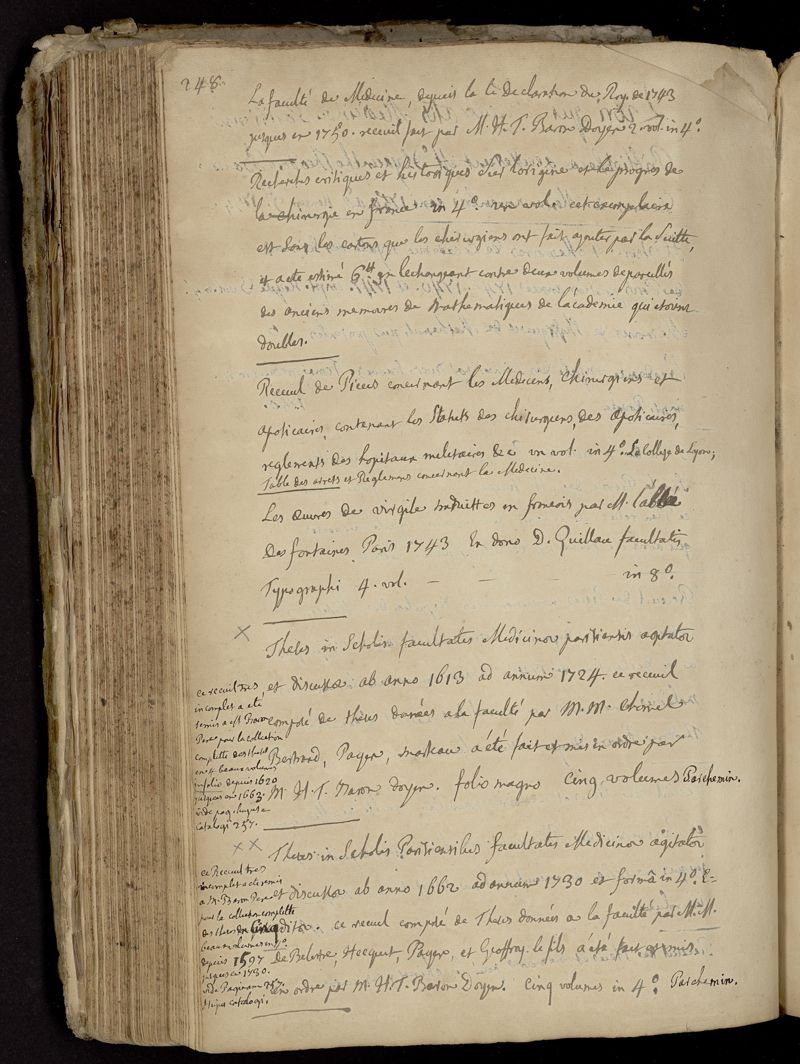 248.
La faculté de Medicine, depuis la de Declaration du Roy. de 1743
jusques en 1750. recueil fait par M. H. T. Baron Doyen 2 vol. in 4°.
Recherches critiques et historiques sur l'origine et le progres de
la chirurgie en france in 4°. vol. cet exemplaire
est dans les cartons que les chirurgiens ont fait ajouter par la suitte,
et a eté estimé 6 tt en l'echangeant contre deux volumes depareillés
des anciens memoires de Mathematiques de l'academie qui etoient
doubles.
Recueil de Pieces concernant les Medecins, Chirurgiens et
apoticaires, contenant les Statuts des chirurgiens, des apoticaires,
reglements des hopitaux militaires &c un vol. in 4°. Le College de Lyon;
Table des arrets et Reglemens concernant la Medecine.
Les œuvres de virgile traduittes en francois par M. l'abbé
des fontaines Paris 1743 Ex dono D. Quillau facultatis
Typographi 4. vol. — — — in 8°.
× Theses in Scholis facultatis Medicinæ parisiensis agitatæ
et discussæ ab anno 1613 ad annum 1724. ce recueil
composé de theses donées a la faculté par M.M. Chomel
Bertrand, Payen, marteau a été fait et mis en ordre par
M. H. T. Baron doyen. folio magno Cinq volumes Parchemin.
ce recueil tres
incomplet a eté
remis a Mr Baron
Pere pour la collection
complette des theses
en 4 beaux volumes
infolio depuis 1620
jusques en 1663.
vide pag. hujusce
catalogi 257.
×× Theses in Scholis Parisiensibus facultatis Medicinæ agitatæ
et discussæ ab anno 1662 ad annum 1730 et formâ in 4°. E-
ditæ. ce recueil composé de Theses données a la faculté par M.M.
De Belestre, Hecquet, Payen, et Geoffroy le fils a été fait et mis
en ordre par M. H. T. Baron Doyen. Cinq volumes in 4°. Parchemin.
ce Recueil tres
incomplet a eté remis
a M. Baron Pere
pour la collection complette
des theses en Cinq
beaux volumes in 4°.
depuis 1597
jusques en 1730.
vide Paginam 257.
hujus catalogi.